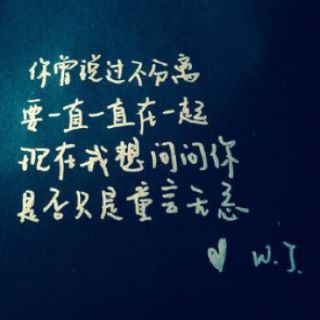 你曾说过不分离
要一直一直在一起
现在我想问问你
是否只是童言无忌
♡ W.J.